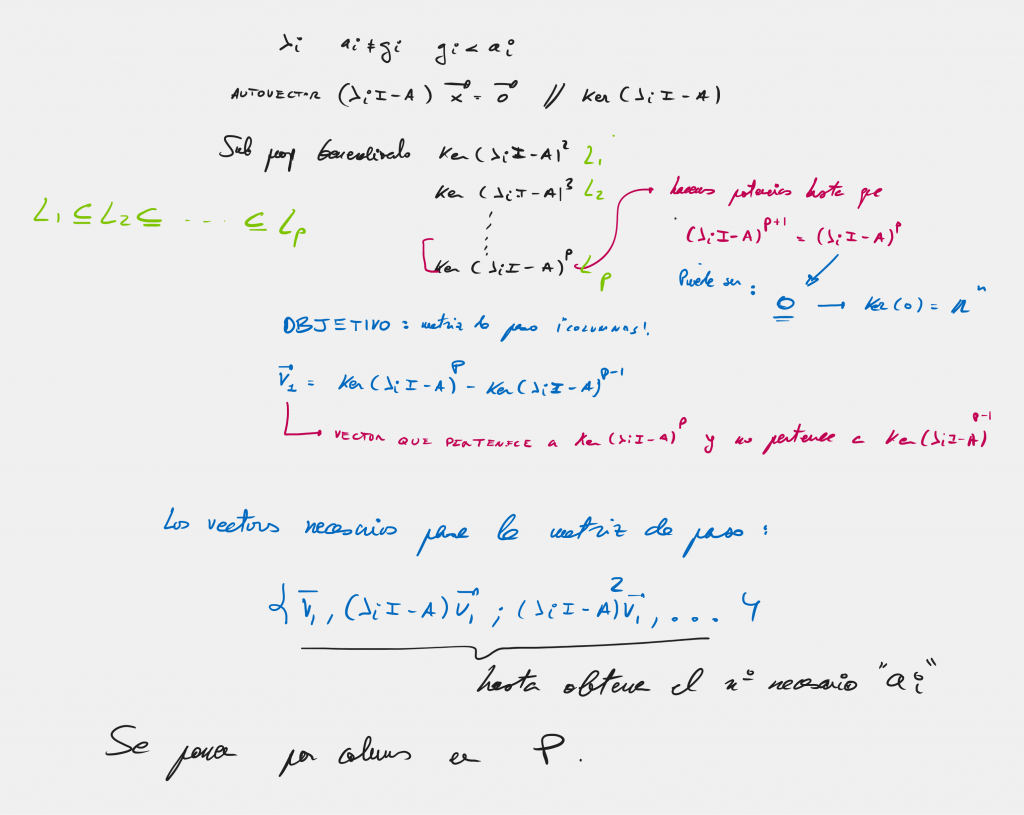 λi ai≠gi gi<ai
AUTOVECTOR (λiI-A) x⃗ = 0⃗ // Ker (λiI-A)
Sub prop Generalizado Ker (λiI-A)² L₁
Ker (λiI-A)³ L₂
hacemos potencias hasta que
L₁ ⊆ L₂ ⊆ ---- ⊆ Lp
(λiI-A)^p+1 = (λiI-A)^p
Ker (λiI-A)^p Lp
Puede ser : 0 → Ker(0) = R^n
OBJETIVO : matriz de paso ¡COLUMNAS!.
v⃗₁ = Ker (λiI-A)^p - Ker (λiI-A)^p-1
VECTOR QUE PERTENECE A Ker (λiI-A)^p y no pertenece a Ker (λiI-A)^p-1
Los vectores necesarios para la matriz de paso :
{ v⃗₁, (λiI-A) v⃗₁ ; (λiI-A)² v⃗₁, ... }
hasta obtener el nº necesario "ai"
Se ponen por columnas en P.